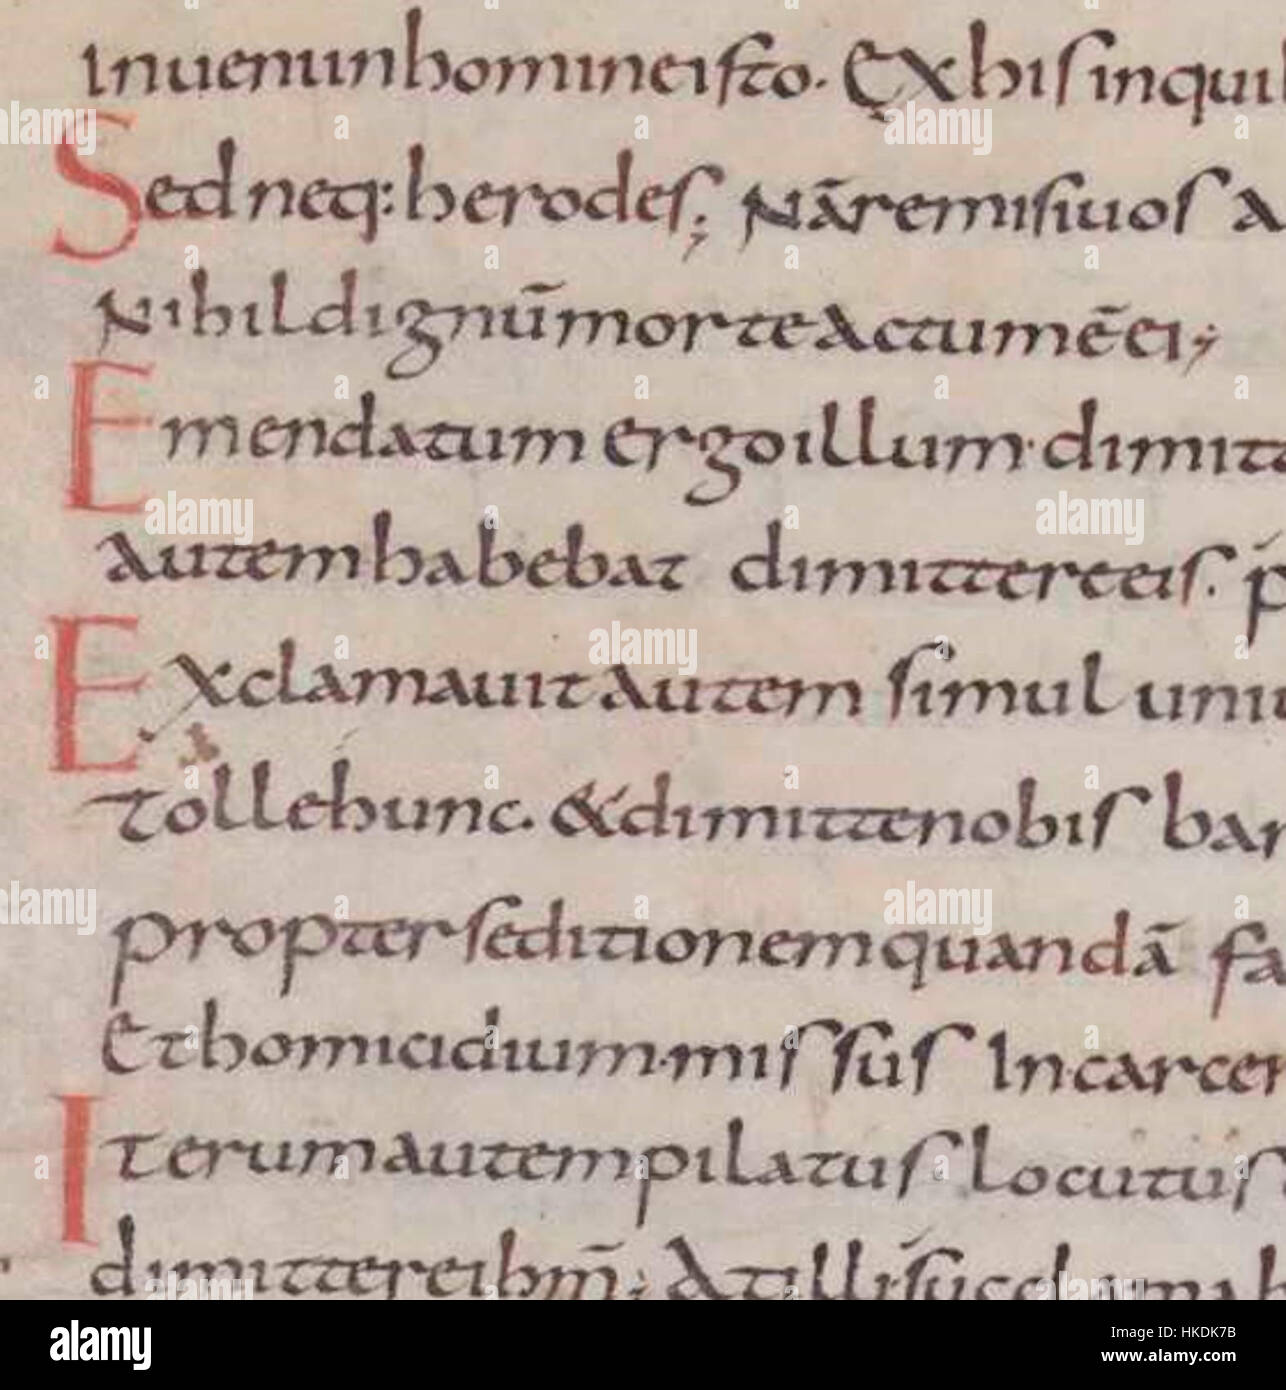 inuenin homine isto. Ex his inqui
Sed neq: herodes; Nā remisi uos a
Nihil dignū morte actum ē ei;
Emendatum ergo illum dimitt
autem habebat dimittere eis. p
Exclamauit autem simul uni
Tolle hunc. & dimitte nobis bar
propter seditionem quandā fa
Et homicidium. missus In carcer
Iterum autem pilatus locutus
dimittere ihm̄; At illi succlamab
alamy
Image ID: HKDK7B
www.alamy.com